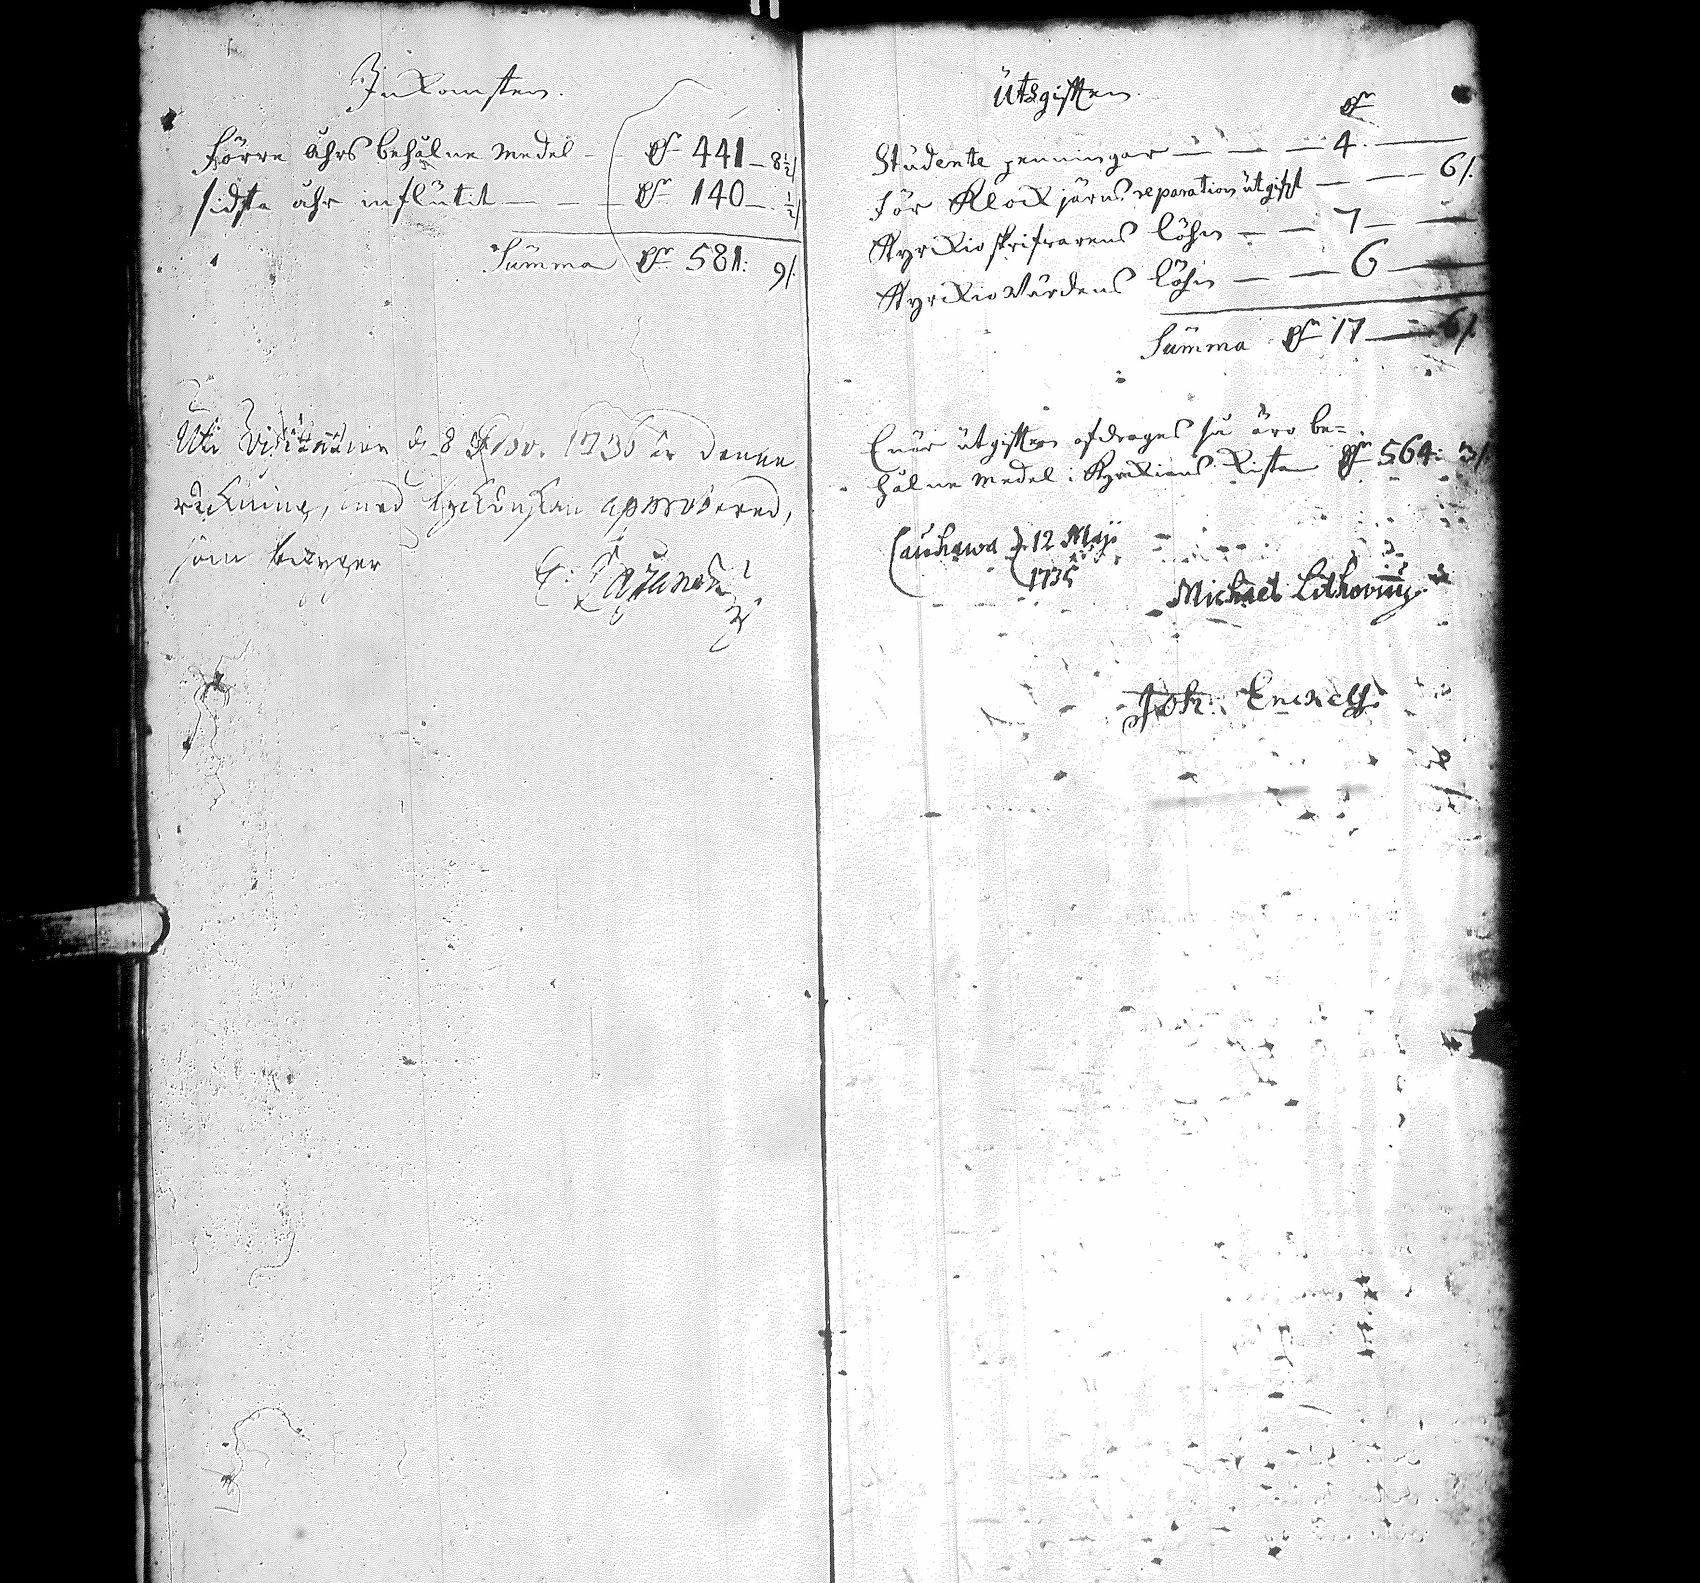 Inkomsten.
Förre åhrs behålne medel — 441 — 8½/
sidsta åhr influtit — — — 140 — ½/
Summa 581: 9/.
Uti Visitation d. 8 Nov. 1736 är denne
räkning, med approberad,
som
Utgifften.
Studente penningar — — — 4. —
För Klock järns reparation utgifft — — 6/.
Kyrkio skrifvarens löhn — — 7 — —
Kyrkio Värdens löhn — — 6 —
Summa 17 — 6/.
När utgifften afdrages så äro be=
hålne medel i Kyrkians Kista 564: 3/.
Cauhawa d. 12 Maji
1735
Michael Lithovius
Joh: Enckell